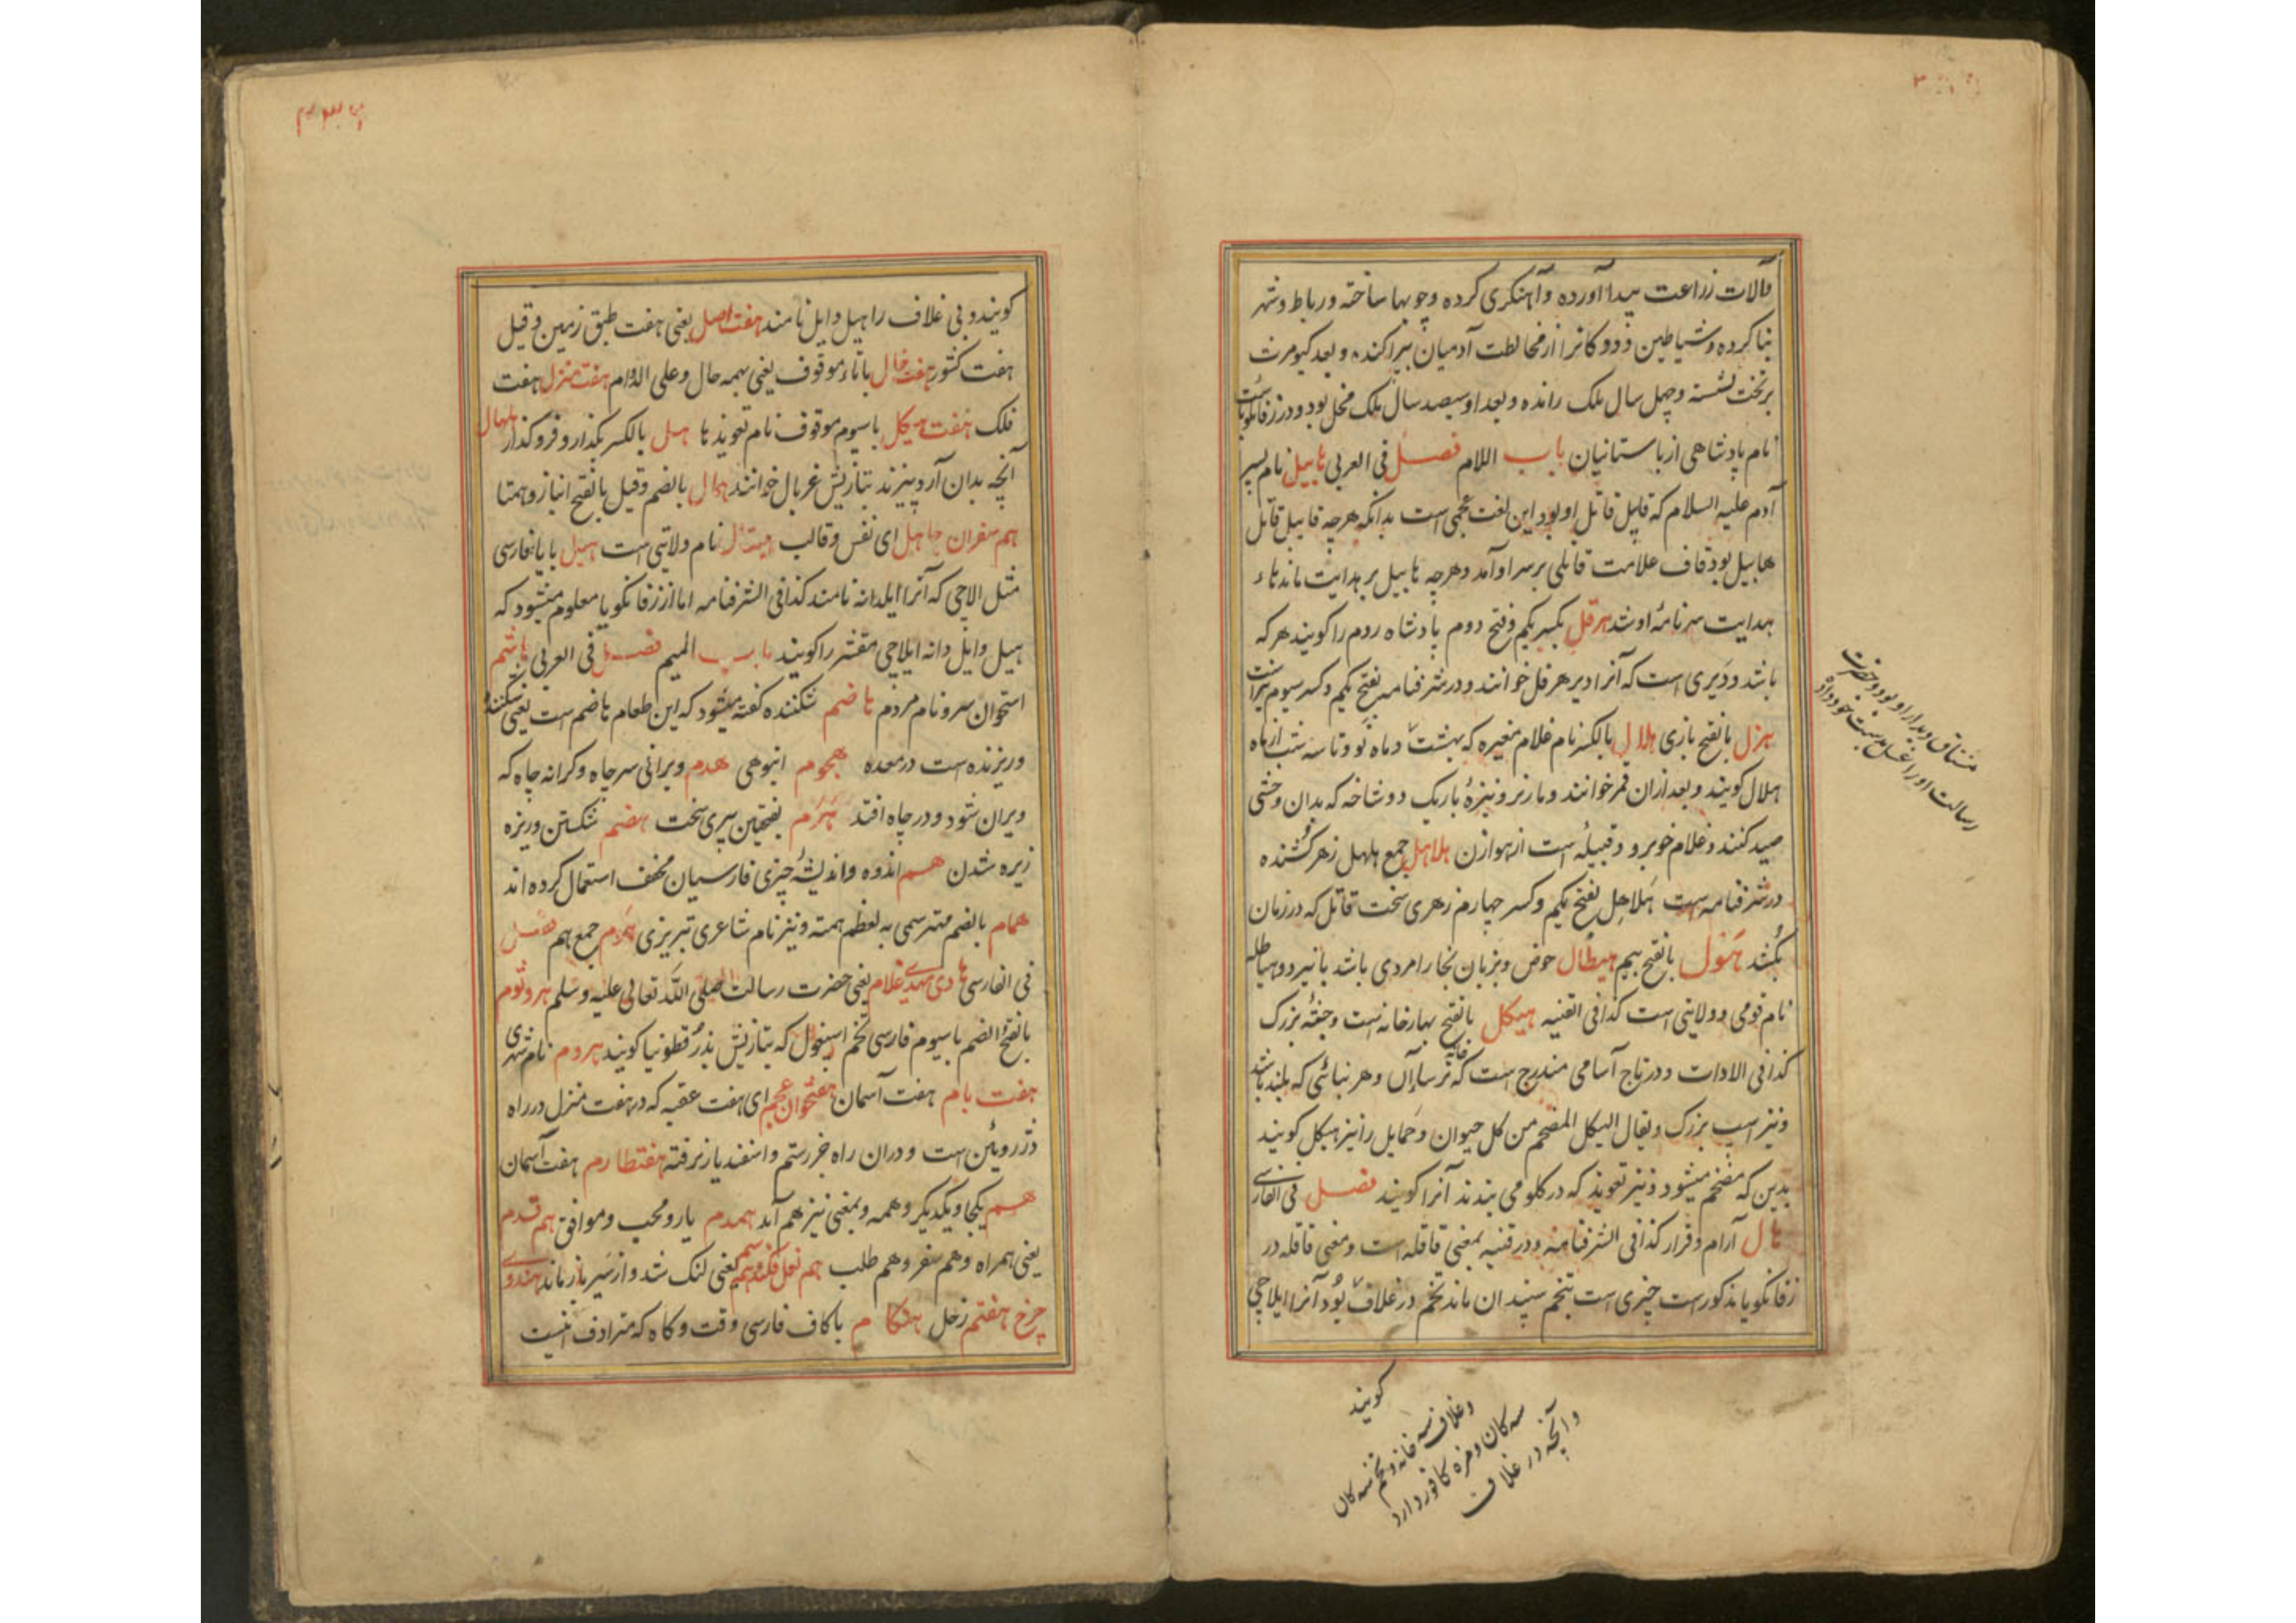 وآلات زراعت پیدا آورده وآهنکری کرده وچوبها ساخته ورباط وشهر
بنا کرده وشیاطین ودوکانرا از مخالطت آدمیان پراکنده وبعد کیومرث
برتخت نشسته وچهل سال ملک رانده وبعد او سیصد سال ملک مخل بود ودر زفانکویا ست
نام پادشاهی از باستانیان باب اللام فصل فی العربی هابیل نام پسر
آدم علیه السلام که قابیل قاتل او بود این لغت عجمی است بدانکه هرچه قابیل قاتل
هابیل بود قاف علامت قاتلی برسر او آمد وهرچه هابیل بر هدایت ماند هاء
هدایت سرنامهٔ او شد هرقل بکسر یکم وفتح دوم پادشاه روم را کویند هرکه
باشد ودیری است که آنرا دیر هرقل خوانند ودر شرفنامه بفتح یکم وکسر سیوم نیز است
هزل بالفتح بازی هلال بالکسر نام غلام مغیره که بهشت وماه نو وتا سه شب از ماه
هلال کویند وبعد ازان قمر خوانند ومار نر ونیزهٔ باریک دوشاخه که بدان وحشی
صید کنند وغلام خوبرو وقبیله است از هوازن هلاهل جمع هلهل زهر کشنده
در شرفنامه است هلاهل بفتح یکم وکسر چهارم زهری سخت قاتل که در زمان
بکشد هول بالفتح بیم هیطال حوض وبزبان بخارا مردی باشد با نیرو وهیاطله
نام قومی وولایتی است کذا فی القنیه هیکل بالفتح بهارخانه است وجثهٔ بزرک
کذا فی الادات ودر تاج آسامی مندرج است که خانه ترسایان وهر بنائی که بلند باشد
ونیز اسپ بزرک ویقال الهیکل الضخم من کل حیوان وحمایل را نیز هیکل کویند
بدین که مضخم میشود ونیز تعویذ که در کلو می بندند آنرا کویند فصل فی الفارسی
هال آرام وقرار کذا فی الشرفنامه ودر قنیه بمعنی قاقله است ومعنی قاقله در
زفانکویا مذکور است چیزی است بتخم سپندان ماند تخم در غلاف بود آنرا ایلاچی
مشتاق دیدار او بود وحضرت
رسالت او را غسل بدست خود داد
کویند
وغلاف سه خانه وتخم سه کان
سه کان ومزه کافور دارد
وآنچه در غلاف
کویند وبی غلاف را هیل وایل نامند هفت اصل یعنی هفت طبق زمین وقیل
هفت کشور هفت حال با تاء موقوف یعنی بهمه حال وعلی الدوام هفت منزل هفت
فلک هفت هیکل با سیوم موقوف نام تعویذ ها هل بالکسر بکذار وفروکذار هلهال
آنچه بدان آرد بیزند بتازیش غربال خوانند همال بالضم وقیل بالفتح انباز وهمتا
هم سفران جاهل ای نفس وقالب هیتال نام ولایتی است هیل با یا فارسی
مثل الاچی که آنرا ایلدانه نامند کذا فی الشرفنامه اما از زفانکویا معلوم میشود که
هیل وایل دانه ایلاچی مقشر را کویند باب المیم فصل فی العربی هاشم
استخوان سر ونام مردم هاضم شکننده کفته میشود که این طعام هاضم است یعنی شکننده
وریزنده است در معده هجوم انبوهی هدم ویرانی سر چاه وکرانه چاه که
ویران شود ودر چاه افتد هرم بفتحتین پیری سخت هضم شکستن وریزه
زیره شدن هم اندوه واندیشهٔ چیزی فارسیان مخفف استعمال کرده اند
همام بالضم مهتر سمی به لعظم همته ونیز نام شاعری تبریزی همام جمع هم فصل
فی الفارسی هادی مهدی غلام یعنی حضرت رسالت صلی الله تعالی علیه وسلم هروتوم
بالفتح والضم با سیوم فارسی تخم اسپغول که بتازیش بذر قطونیا کویند هروم نام شهری
هفت بام هفت آسمان هفتخوان عجم ای هفت عقبه که در هفت منزل در راه
دژ روئین است ودران راه جز رستم واسفندیار نرفته هفتطارم هفت آسمان
هم یکجا ویکدیکر وهمه وبمعنی نیز هم آید همدم یار ومحب وموافق هم قدم
یعنی همراه وهم سفر وهم طلب هم نعل فکند هم سم یعنی لنک شد واز سیر باز ماند هندوی
چرخ هفتم زحل هنکام با کاف فارسی وقت وکاه که مترادف است